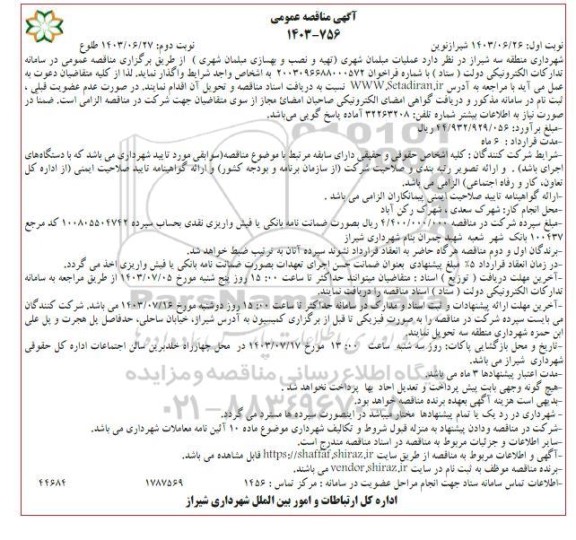 آگهی مناقصه عمومی
۷۵۶-۱۴۰۳
نوبت اول: ۱۴۰۳/۰۶/۲۶ شیرازنوین نوبت دوم: ۱۴۰۳/۰۶/۲۷ طلوع
شهرداری منطقه سه شیراز در نظر دارد عملیات مبلمان شهری (تهیه و نصب و بهسازی مبلمان شهری ) از طریق برگزاری مناقصه عمومی در سامانه
تدارکات الکترونیکی دولت ( ستاد ) با شماره فراخوان ۲۰۰۳۰۹۶۶۸۸۰۰۰۵۷۲ به اشخاص واجد شرایط واگذار نماید. لذا از کلیه متقاضیان دعوت به
عمل می آید با مراجعه به آدرس WWW.Setadiran.ir نسبت به دریافت اسناد مناقصه و تحویل آن اقدام نمایند. در صورت عدم عضویت قبلی ،
ثبت نام در سامانه مذکور و دریافت گواهی امضای الکترونیکی صاحبان امضائ مجاز از سوی متقاضیان جهت شرکت در مناقصه الزامی است. ضمنا در
صورت نیاز به اطلاعات بیشتر شماره تلفن: ۳۲۲۶۳۲۰۸ آماده پاسخ گویی می‌باشد.
-مبلغ برآورد: ۴۴/۹۳۲/۹۲۹/۰۵۶ ریال
-مدت قرارداد : ۶ ماه
-شرایط شرکت کنندگان : کلیه اشخاص حقوقی و حقیقی دارای سابقه مرتبط با موضوع مناقصه(سوابقی مورد تایید شهرداری می باشد که با دستگاه‌های
اجرای باشد) . و ارائه تصویر رتبه بندی و صلاحیت شرکت (از سازمان برنامه و بودجه کشور) و ارائه گواهینامه تایید صلاحیت ایمنی (از اداره کل
تعاون، کار و رفاه اجتماعی) الزامی می باشد.
-ارائه گواهینامه تایید صلاحیت ایمنی پیمانکاران الزامی می باشد .
-محل انجام کار: شهرک سعدی ، شهرک رکن آباد
-مبلغ سپرده شرکت در مناقصه ۴/۴۰۰/۰۰۰/۰۰۰ ریال بصورت ضمانت نامه بانکی یا فیش واریزی نقدی بحساب سپرده ۱۰۰۸۰۵۵۰۴۷۴۲ کد مرجع
۱۰۰۴۳۷ بانک شهر شعبه شهید چمران بنام شهرداری شیراز
-برندگان اول و دوم مناقصه هرگاه حاضر به انعقاد قرارداد نشوند سپرده آنان به ترتیب ضبط خواهد شد.
-در زمان انعقاد قرارداد ۵٪ مبلغ پیشنهادی بعنوان ضمانت حسن اجرای تعهدات بصورت ضمانت نامه بانکی یا فیش واریزی اخذ می گردد.
-آخرین مهلت دریافت ( توزیع ) اسناد : متقاضیان میتوانند حداکثر تا ساعت ۰۰: ۱۵ روز پنج شنبه مورخ ۱۴۰۳/۰۷/۰۵ از طریق مراجعه به سامانه
تدارکات الکترونیکی دولت ( ستاد ) اسناد مناقصه را دریافت نمایند.
-آخرین مهلت ارائه پیشنهادات و ثبت اسناد و مدارک در سامانه حداکثر تا ساعت ۰۰: ۱۵ روز دوشنبه مورخ ۱۴۰۳/۰۷/۱۶ می باشد. شرکت کنندگان
می بایست سپرده شرکت در مناقصه را به صورت فیزیکی تا قبل از برگزاری کمیسیون به آدرس شیراز، خیابان ساحلی، حدفاصل پل هجرت و پل علی
ابن حمزه شهرداری منطقه سه تحویل نمایند.
-تاریخ و محل بازگشایی پاکات: روز سه شنبه ساعت ۰۰: ۱۳ مورخ ۱۴۰۳/۰۷/۱۷ در محل چهارراه خلدبرین سالن اجتماعات اداره کل حقوقی
شهرداری شیراز می باشد.
-مدت اعتبار پیشنهادها ۳ ماه می باشد.
-هیچ گونه وجهی بابت پیش پرداخت و تعدیل احاد بها پرداخت نخواهد شد .
-بدیهی است هزینه آگهی بعهده برنده مناقصه خواهد بود.
- شهرداری در رد یک یا تمام پیشنهادها مختار میباشد در اینصورت سپرده ها مسترد می گردد.
-شرکت در مناقصه ودادن پیشنهاد به منزله قبول شروط و تکالیف شهرداری موضوع ماده ۱۰ آئین نامه معاملات شهرداری می باشد.
-سایر اطلاعات و جزئیات مربوط به مناقصه در اسناد مناقصه مندرج است.
-آگهی و اطلاعات مربوط به مناقصه از طریق سایت https://shaffaf.shiraz.ir قابل مشاهده می باشد.
-برنده مناقصه موظف به ثبت نام در سایت vendor.shiraz.ir می باشند.
-اطلاعات تماس سامانه ستاد جهت انجام مراحل عضویت در سامانه : مرکز تماس : ۱۴۵۶ ۱۷۸۷۵۶۹ ۴۴۶۸۴
اداره کل ارتباطات و امور بین الملل شهرداری شیراز